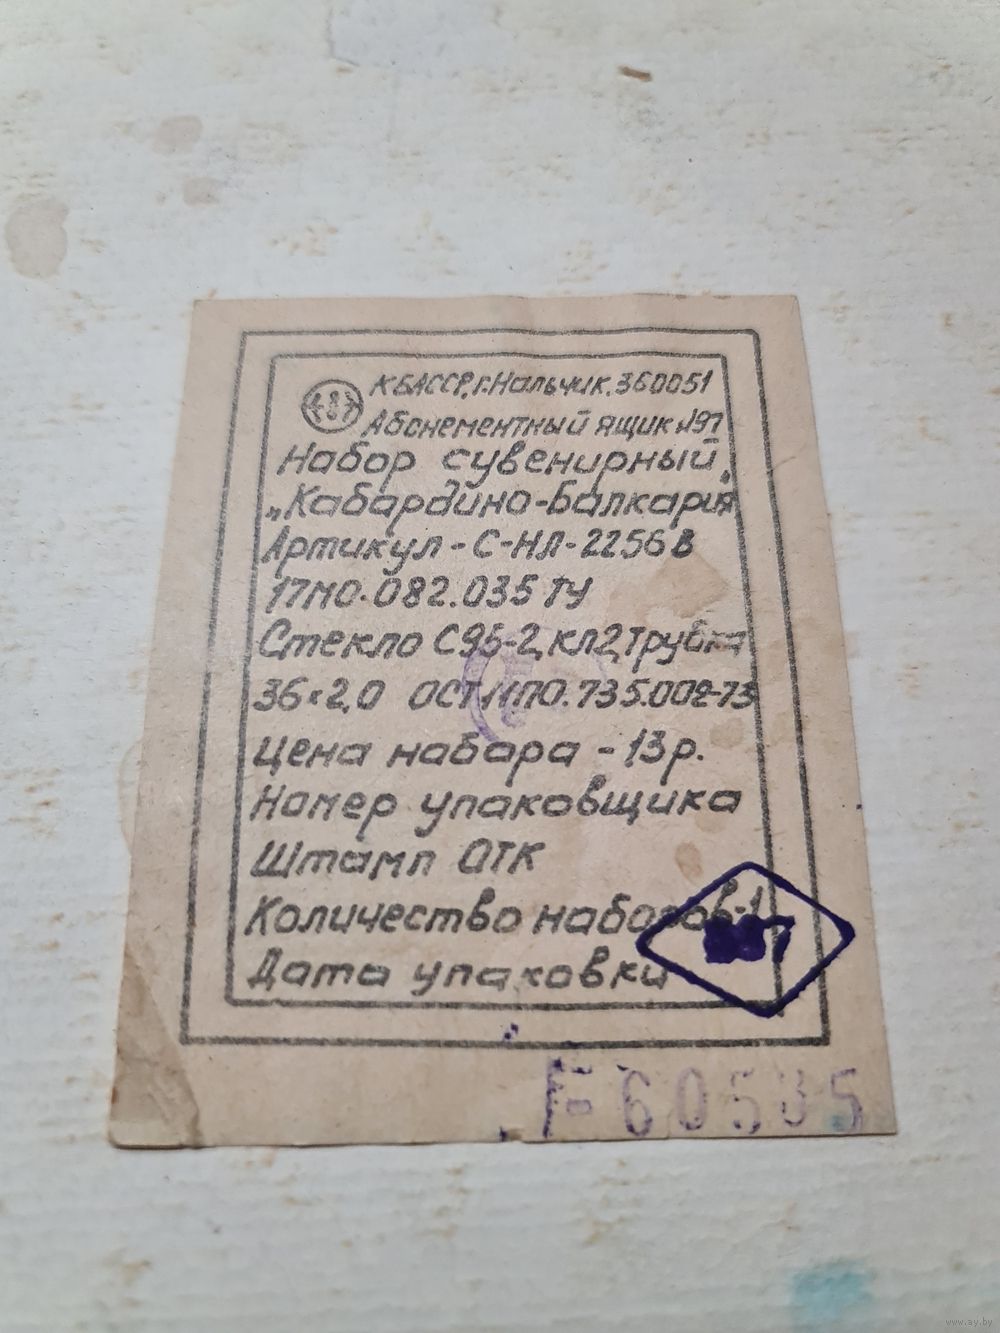 КБАССР, г. Нальчик, 360051
Абонементный ящик №97
Набор сувенирный
„Кабардино-Балкария"
Артикул - С-НЛ-2256 В
17МО.082.035 ТУ
Стекло С95-2, кл2, трубка
36×2,0 ОСТ 11ПО.735.002-73
Цена набора - 13 р.
Номер упаковщика
Штамп ОТК
Количество наборов-1
Дата упаковки
60535
www.ay.by